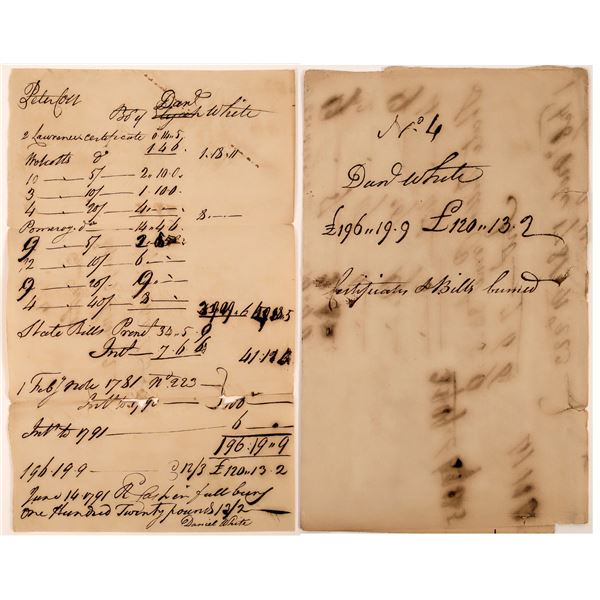 Peter Colt
Dan¹
Bo't of Elijah White
2 Lawrence certificate 0.14.5
Wolcotts d° 1.4.6 1.18.11
10 — 5/ — 2.10.0
3 — 10/ — 1.10.0
4 — 20/ — 4.— 8.—
Pomeroy d° — 14.4.6
9 — 5/ — 2.
12 — 10/ — 6.—
9 — 20/ — 9.—
4 — 40/ — 8 —
State Bills Prinl 34.5.9
Int 7.6.6 41.
1 Feby note 1781 N° 223 —
Int to 1790 — 100 —
Int to 1791 — 6 —
196.19.9
196.19.9 — @ 12/3 £120.13.2
June 14 1791 R Cash in full
One Hundred Twenty pounds 13/2
Daniel White
N° 4
Dan¹ White
£196.19.9 £120.13.2
Certificates & Bills burned